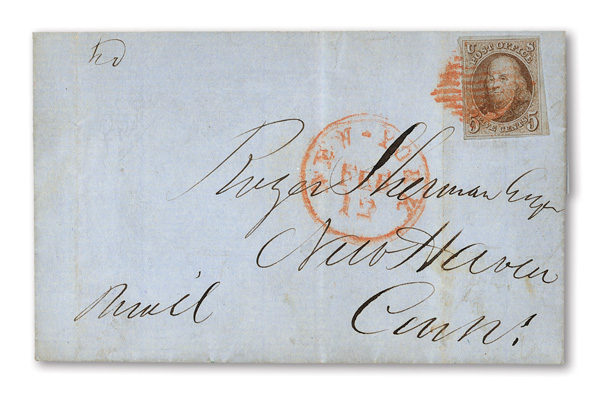 U S
POST OFFICE
5 FIVE CENTS 5
NEW-YORK
FEB
Roger Sherman Esqr
New Haven
Conn.